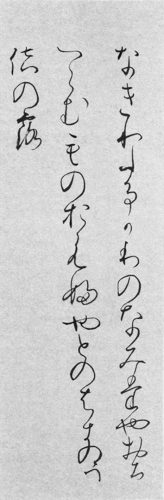 なきわたるかりのなみたやおち
つらむものおもふやとのはきのう
への露